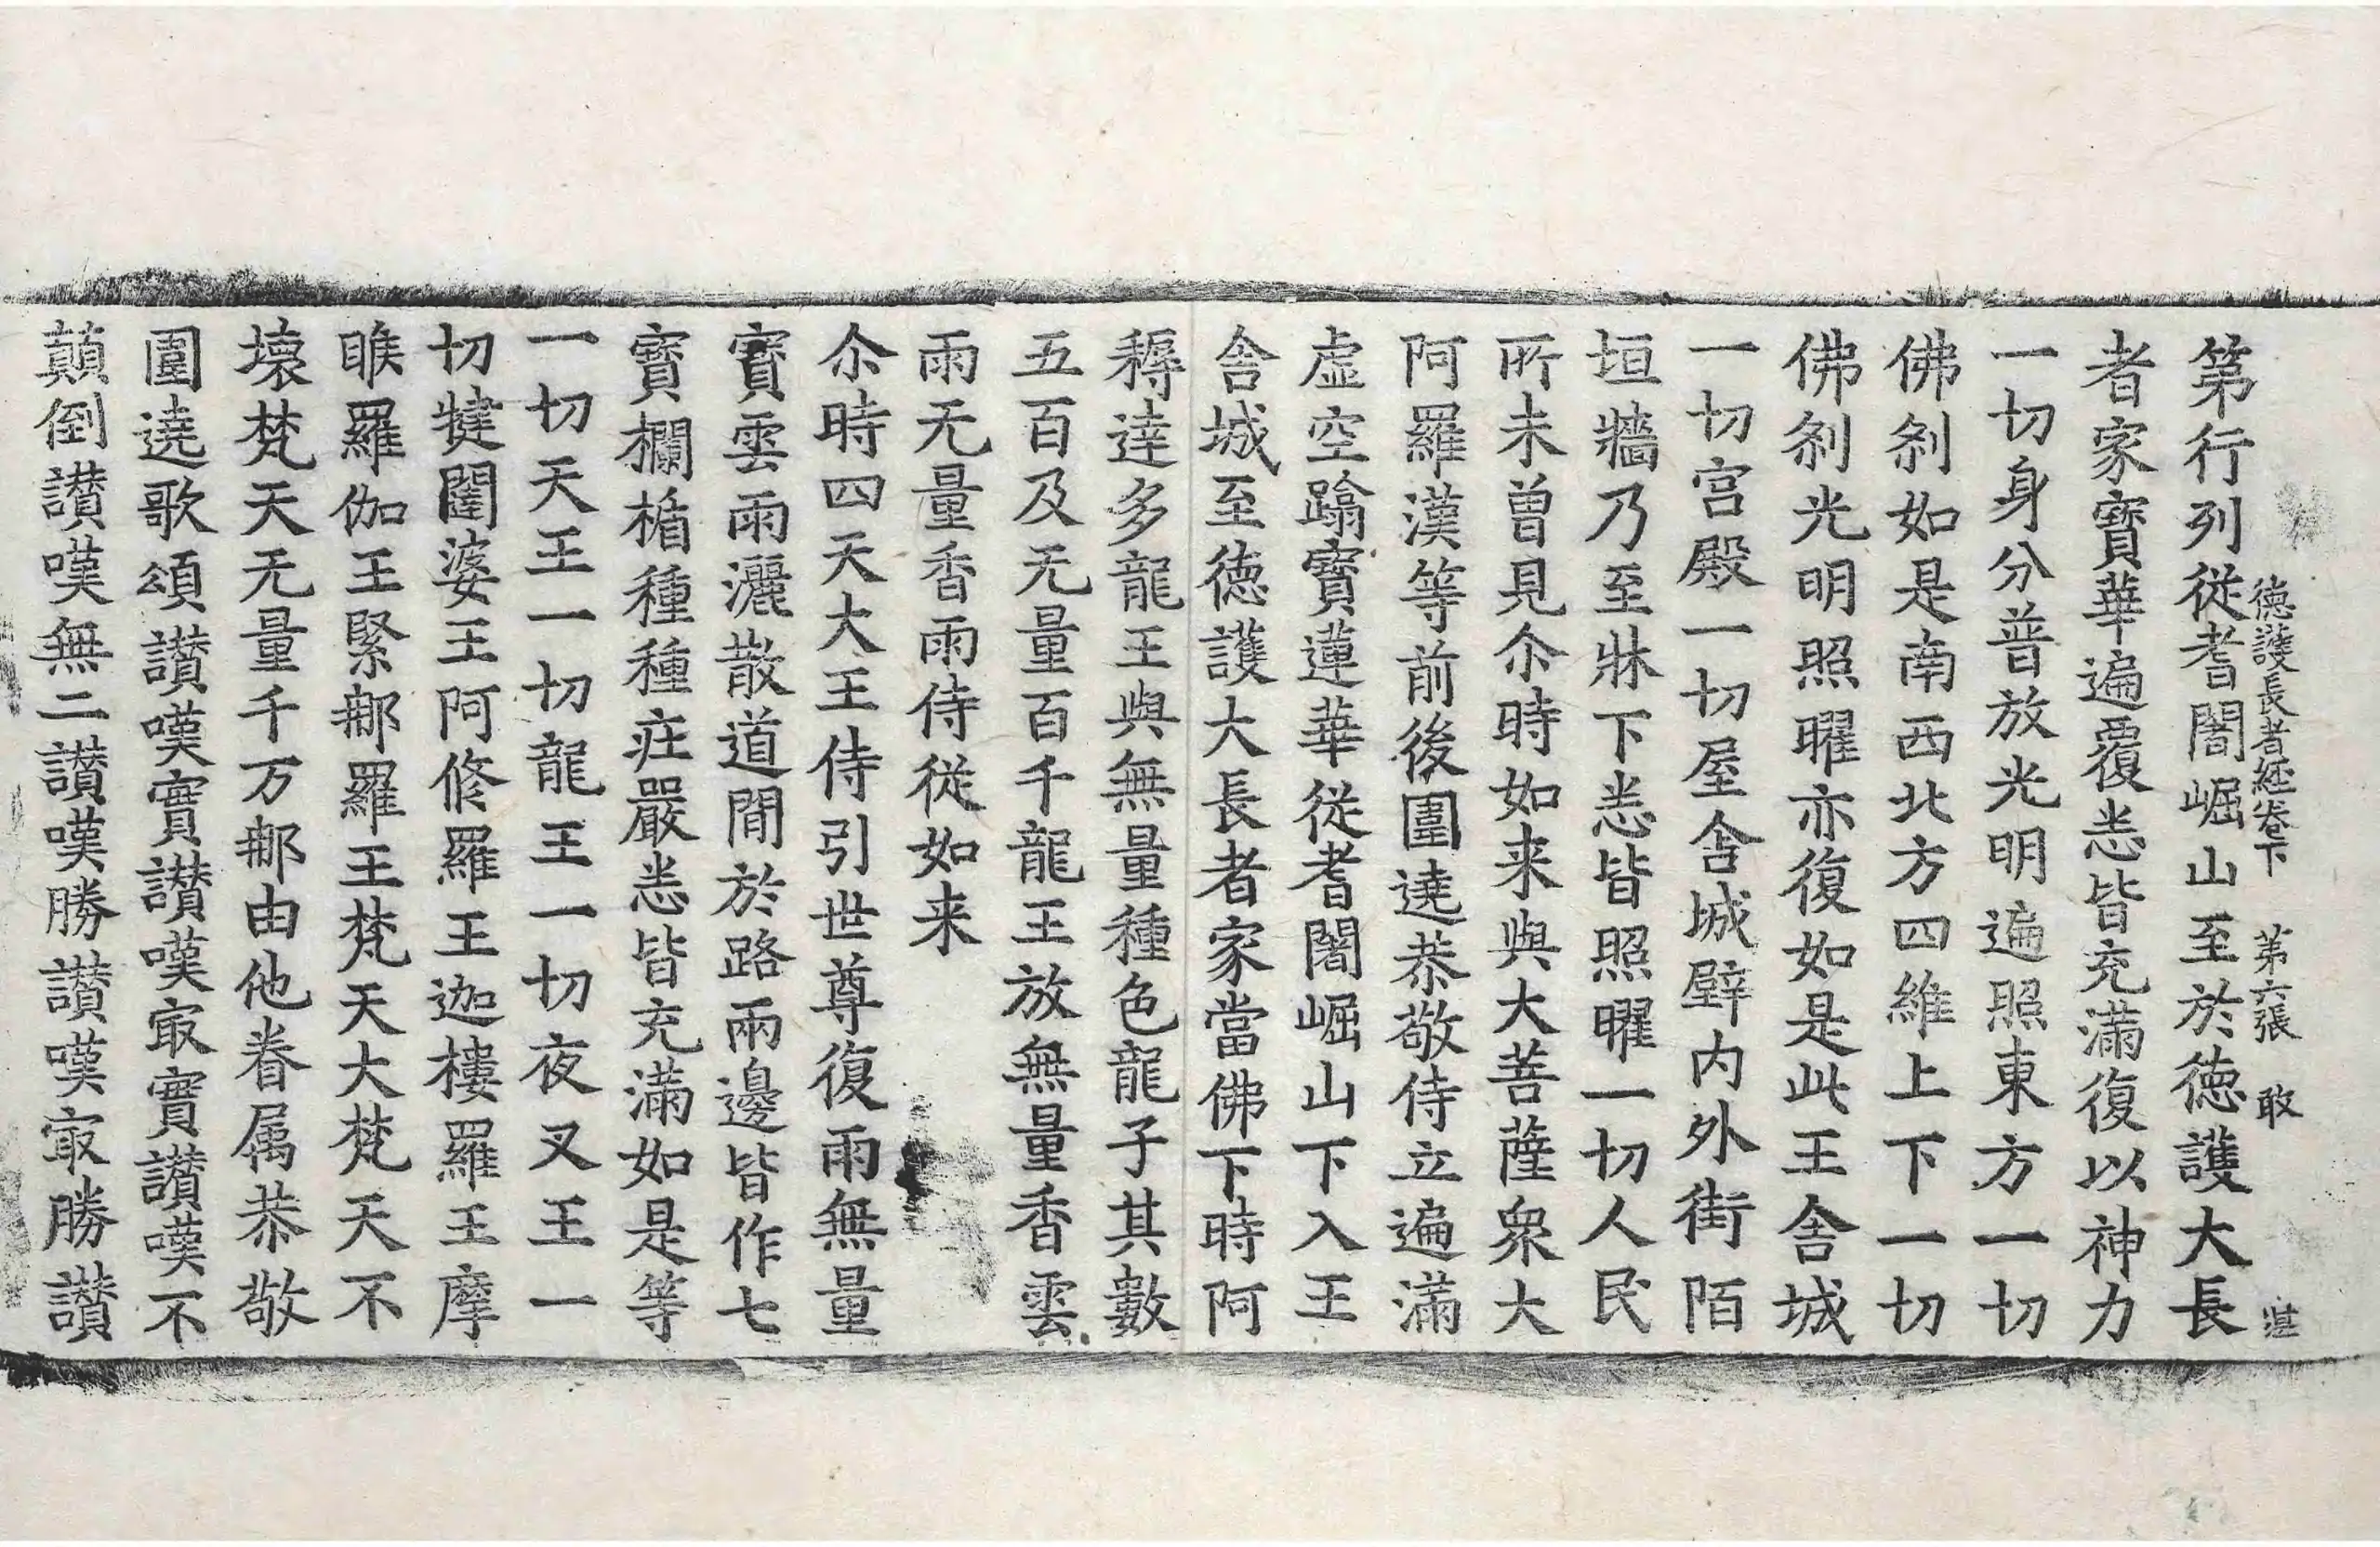 德護長者經卷下　第六張　敢
湛
第行列從耆闍崛山至於德護大長
者家寶華遍覆悉皆充滿復以神力
一切身分普放光明遍照東方一切
佛刹如是南西北方四維上下一切
佛刹光明照曜亦復如是此王舍城
一切宮殿一切屋舍城壁內外街陌
垣牆乃至牀下悉皆照曜一切人民
所未曾見尒時如来與大菩薩衆大
阿羅漢等前後圍遶恭敬侍立遍滿
虛空蹋寶蓮華從耆闍崛山下入王
舍城至德護大長者家當佛下時阿
耨達多龍王與無量種色龍子其數
五百及无量百千龍王放無量香雲
雨无量香雨侍從如来
尒時四天大王侍引世尊復雨無量
寶雲雨灑散道間於路兩邊皆作七
寶欄楯種種莊嚴悉皆充滿如是等
一切天王一切龍王一切夜叉王一
切揵闥婆王阿修羅王迦樓羅王摩
睺羅伽王緊那羅王梵天大梵天不
壞梵天无量千万那由他眷属恭敬
圍遶歌頌讃嘆實讃嘆㝡實讃嘆不
顛倒讃嘆無二讃嘆勝讃嘆㝡勝讃